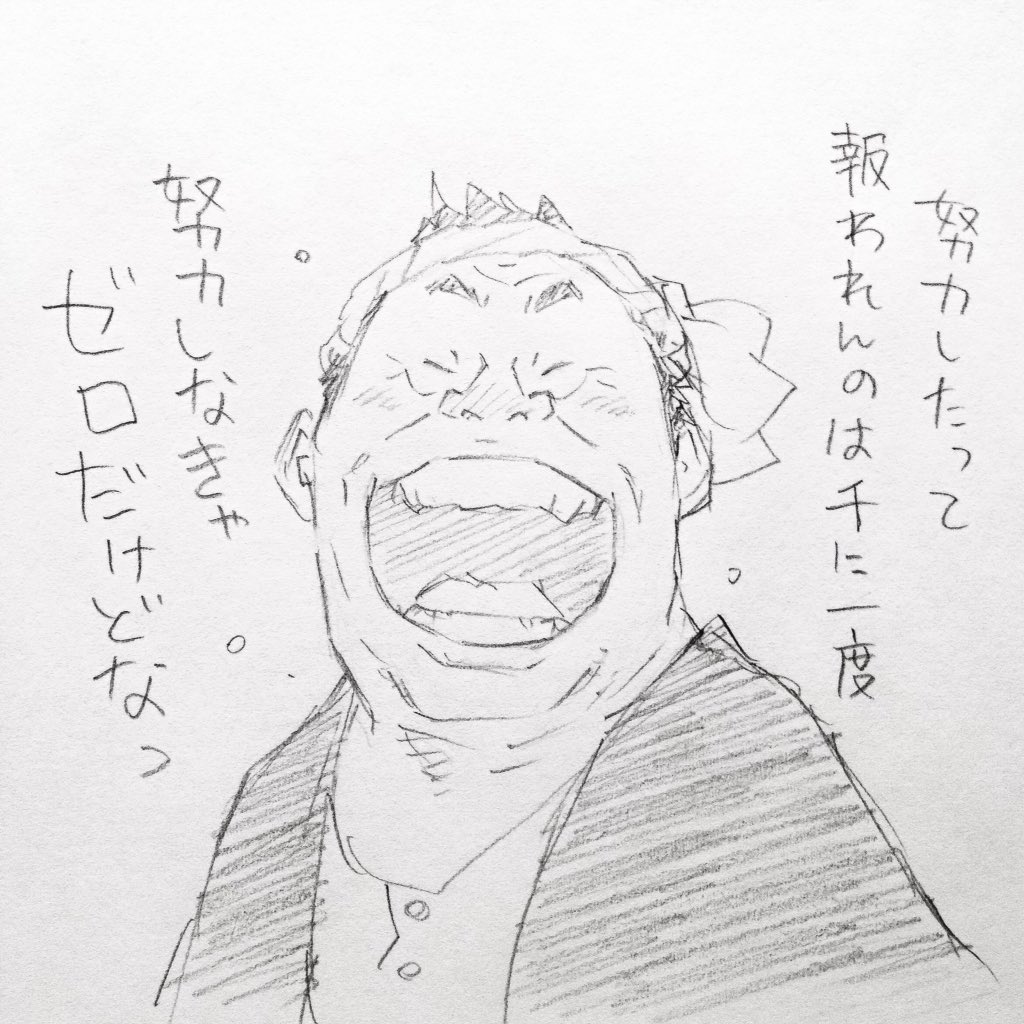 努力したって
報われんのは千に一度
努力しなきゃ
ゼロだけどなっ